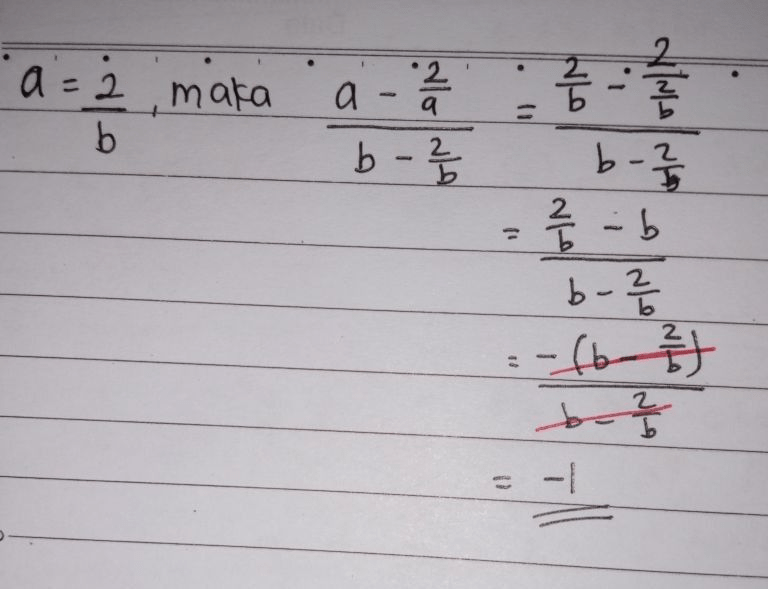 a = 2/b , maka (a - 2/a)/(b - 2/b) = (2/b - 2/(2/b))/(b - 2/b)
= (2/b - b)/(b - 2/b)
= -(b - 2/b)/(b - 2/b)
= -1